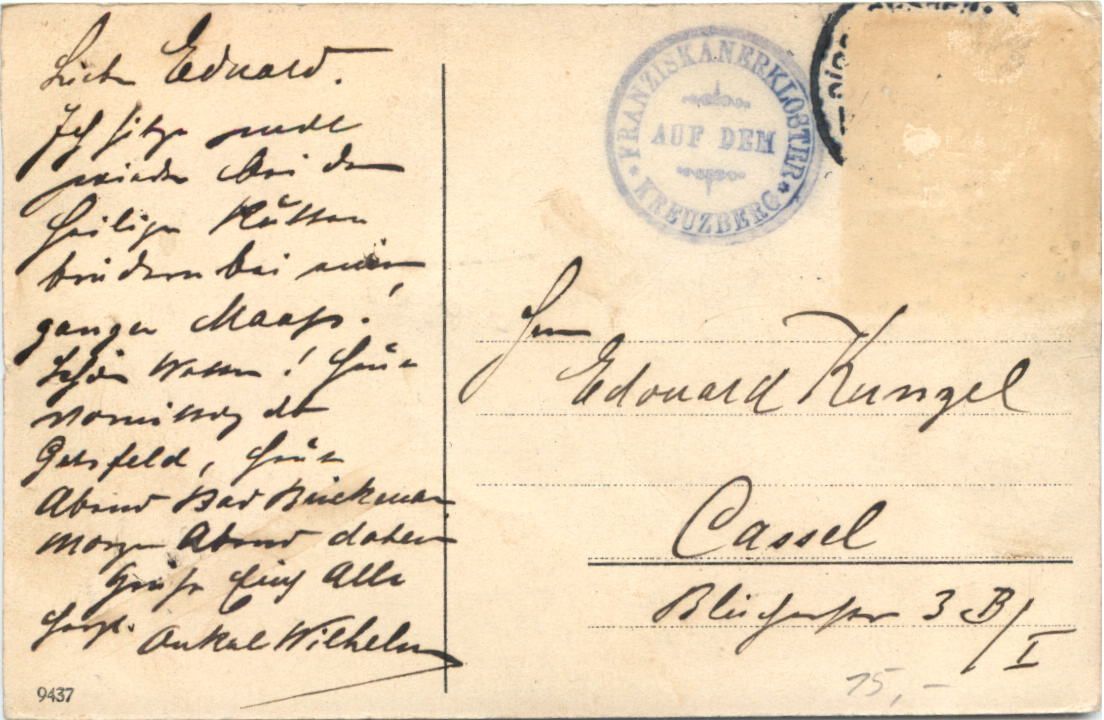 Lieber Eduard.
Ich sitze
wieder bei den
heiligen Kutten
brüdern bei einer
ganzen Maaß!
Schön Wetter! Heute
vormittag ab
Gersfeld, heute
Abend Bad Brückenau
morgen Abend daheim
Grüße Euch Alle
herzl. Onkel Wilhelm
9437
FRANZISKANERKLOSTER
AUF DEM
KREUZBERG
Herrn
Edouard Kunzel
Cassel
Blücherstr 3 B/I
15,-